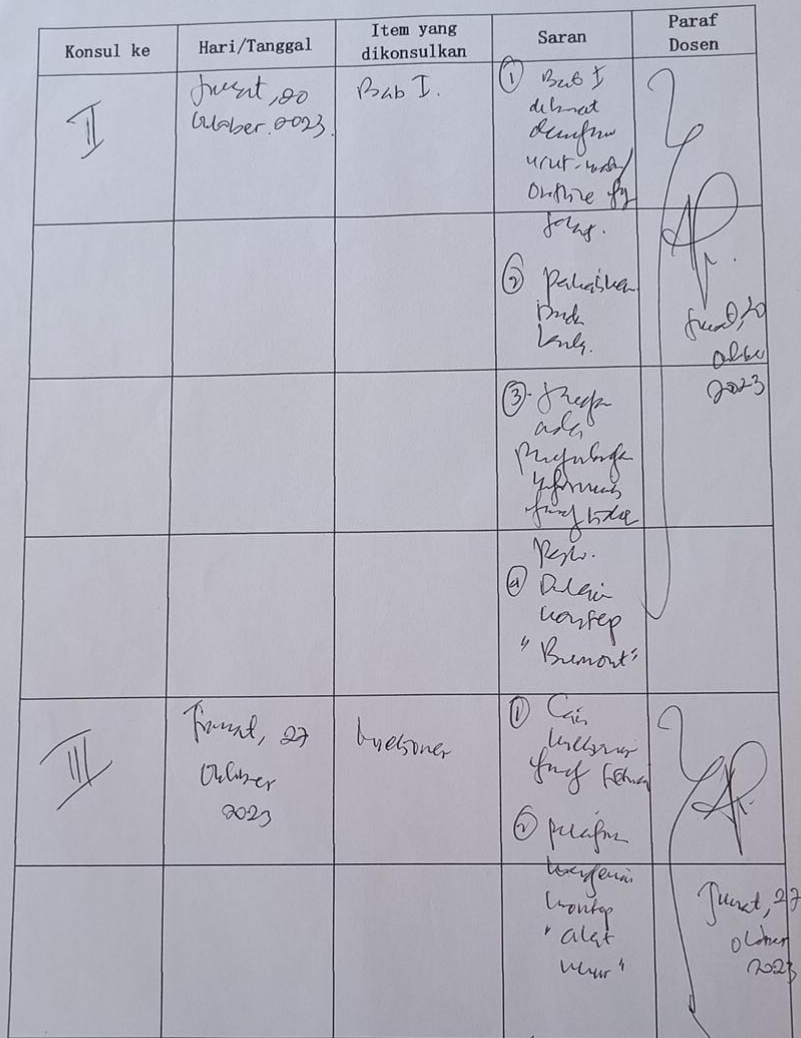 Konsul ke
Hari/Tanggal
Item yang
dikonsulkan
Saran
Paraf
Dosen
II
Jumat, 20
Oktober 2023.
Bab I.
① Bab I
dibuat
dengan
urut-urutan
Outline yg
jelas.
②
buku
③ Jangan
ada
pengulangan
informasi
yang tidak
perlu.
④ Dalami
konsep
"Bremont"
Jumat, 20
Oktober
2023
III
Jumat, 27
Oktober
2023
kuesioner
① Cari
kuesioner
yang
② pelajari
mengenai
konsep
"alat
ukur"
Jumat, 27
Oktober
2023